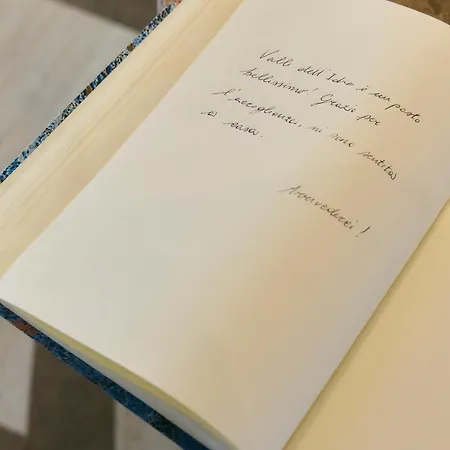 Valli dell'Idro è un posto
bellissimo! Grazie per
l'accoglienza, mi sono sentita
a casa.
Arrivederci!